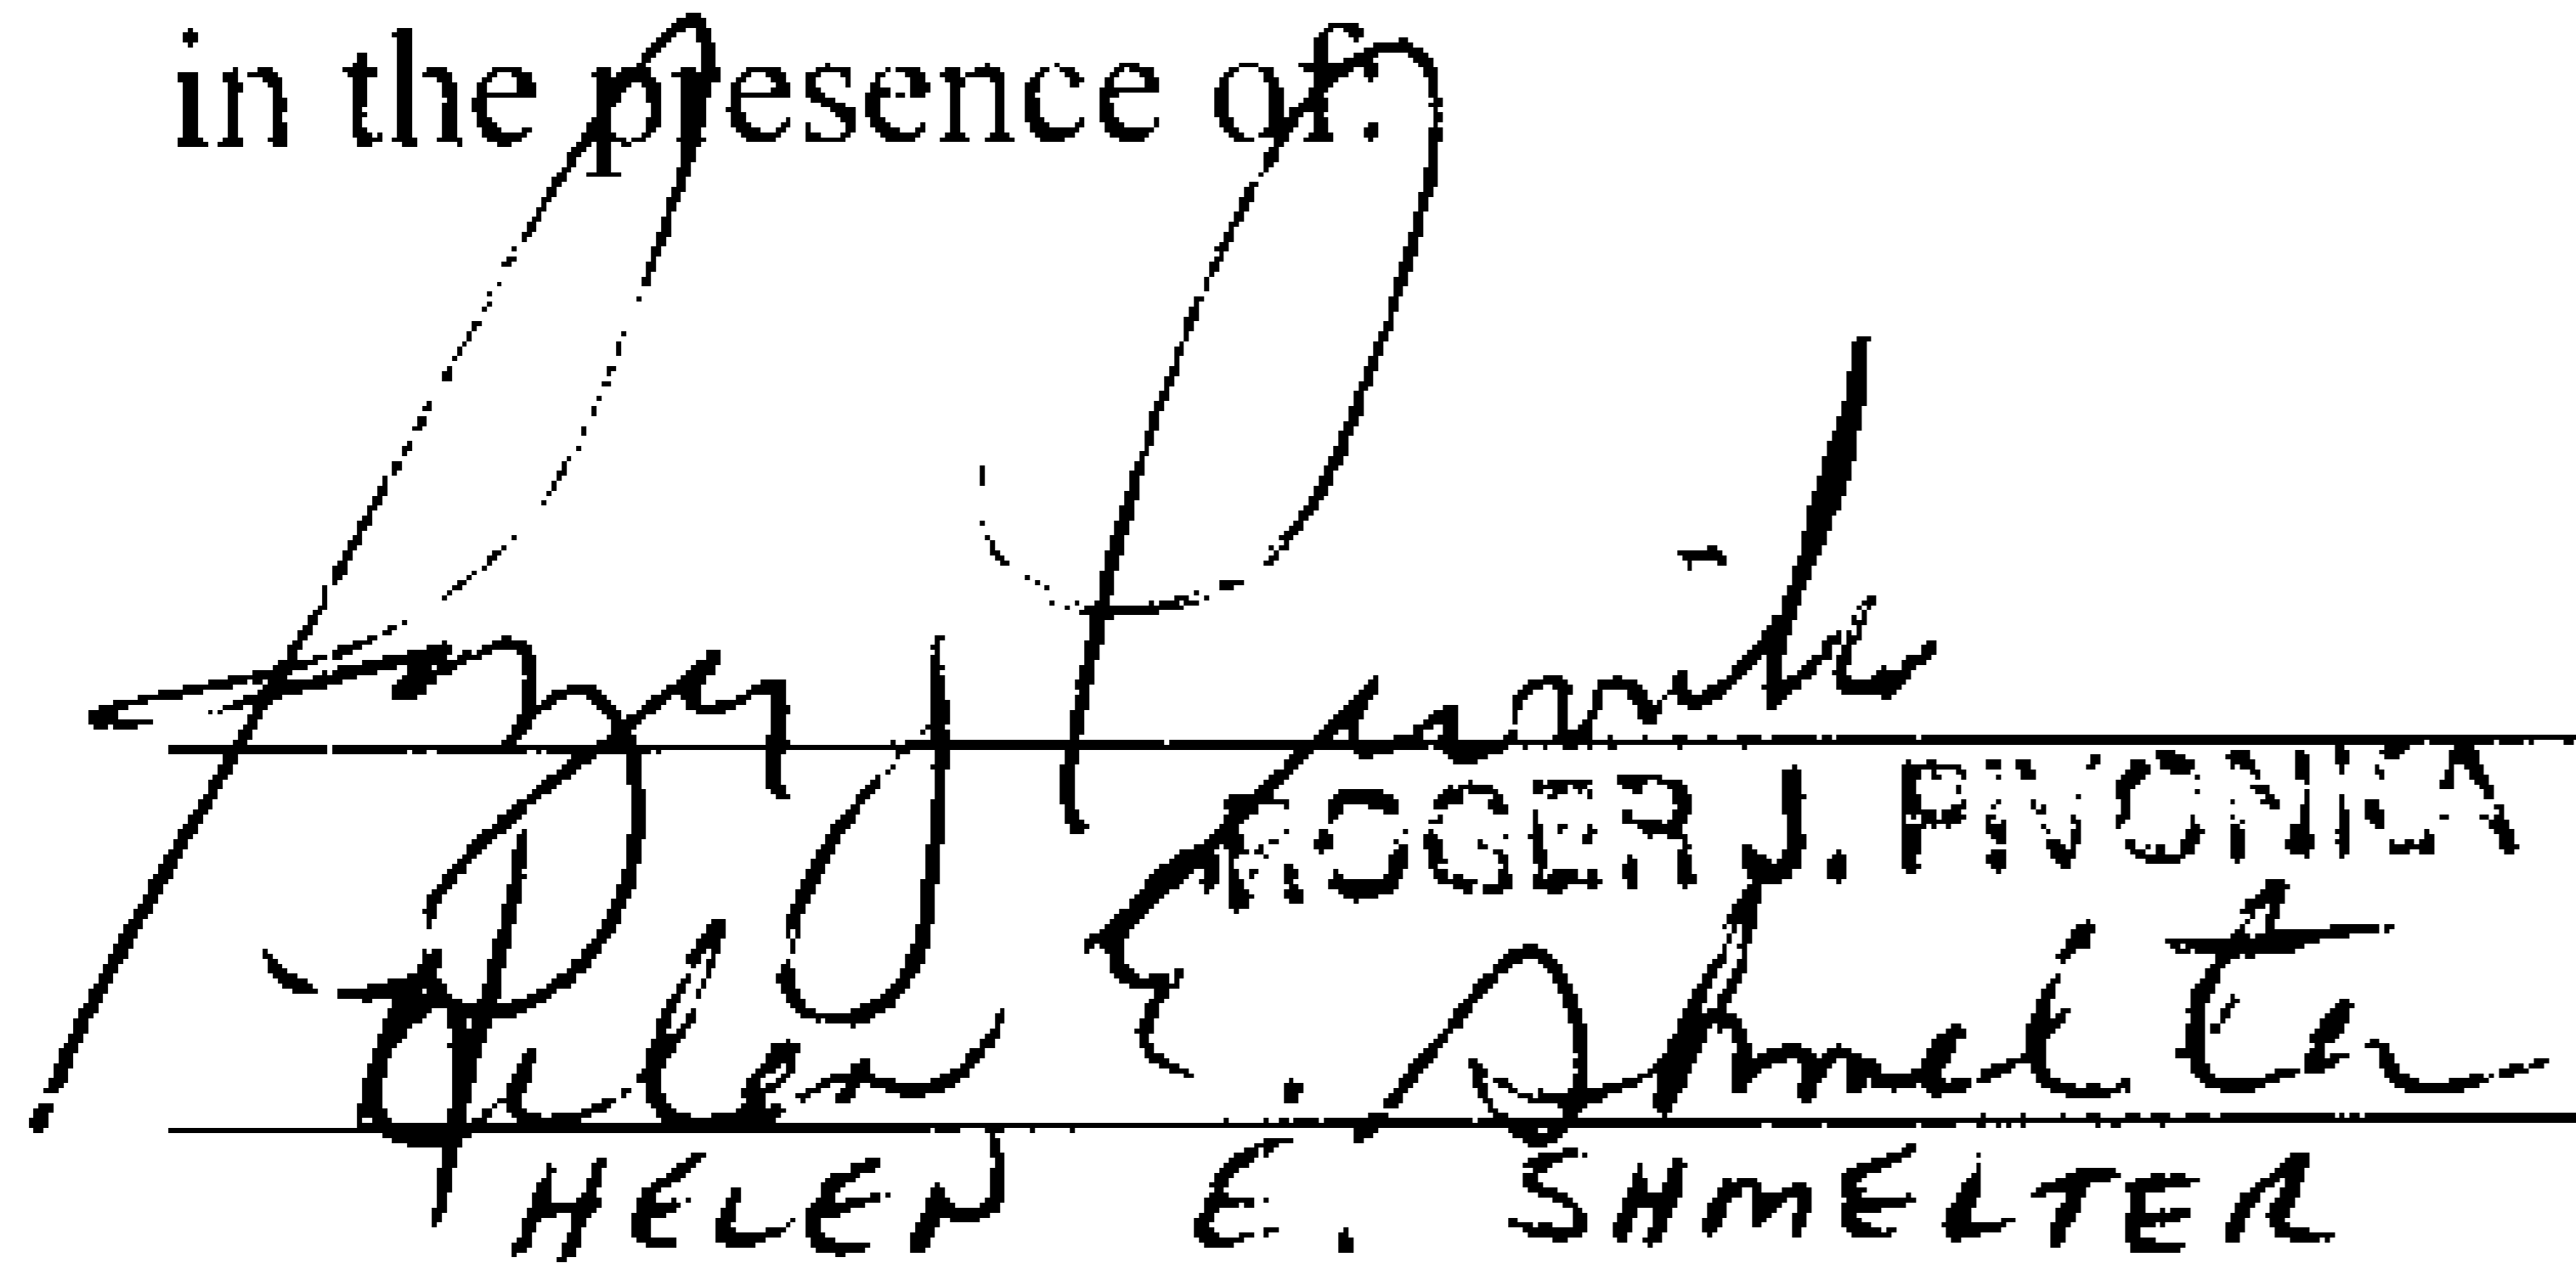 in the presence of:
ROGER J. PIVONICA
Helen E. Shmelter
HELEN E. SHMELTER